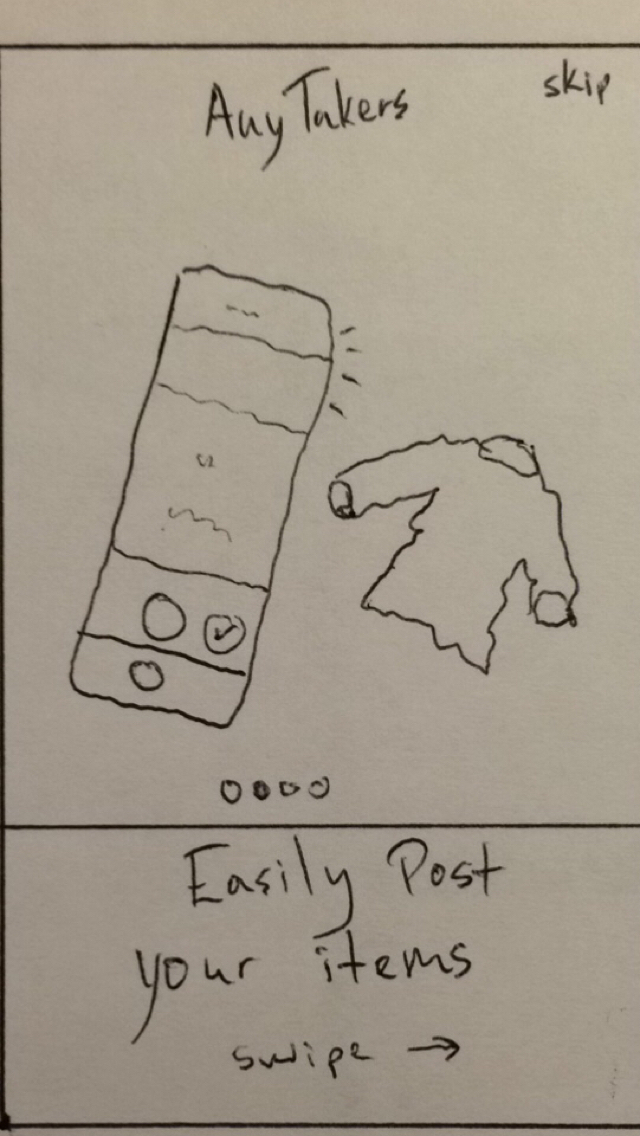 AnyTakers
skip
Easily Post
your items
swipe →